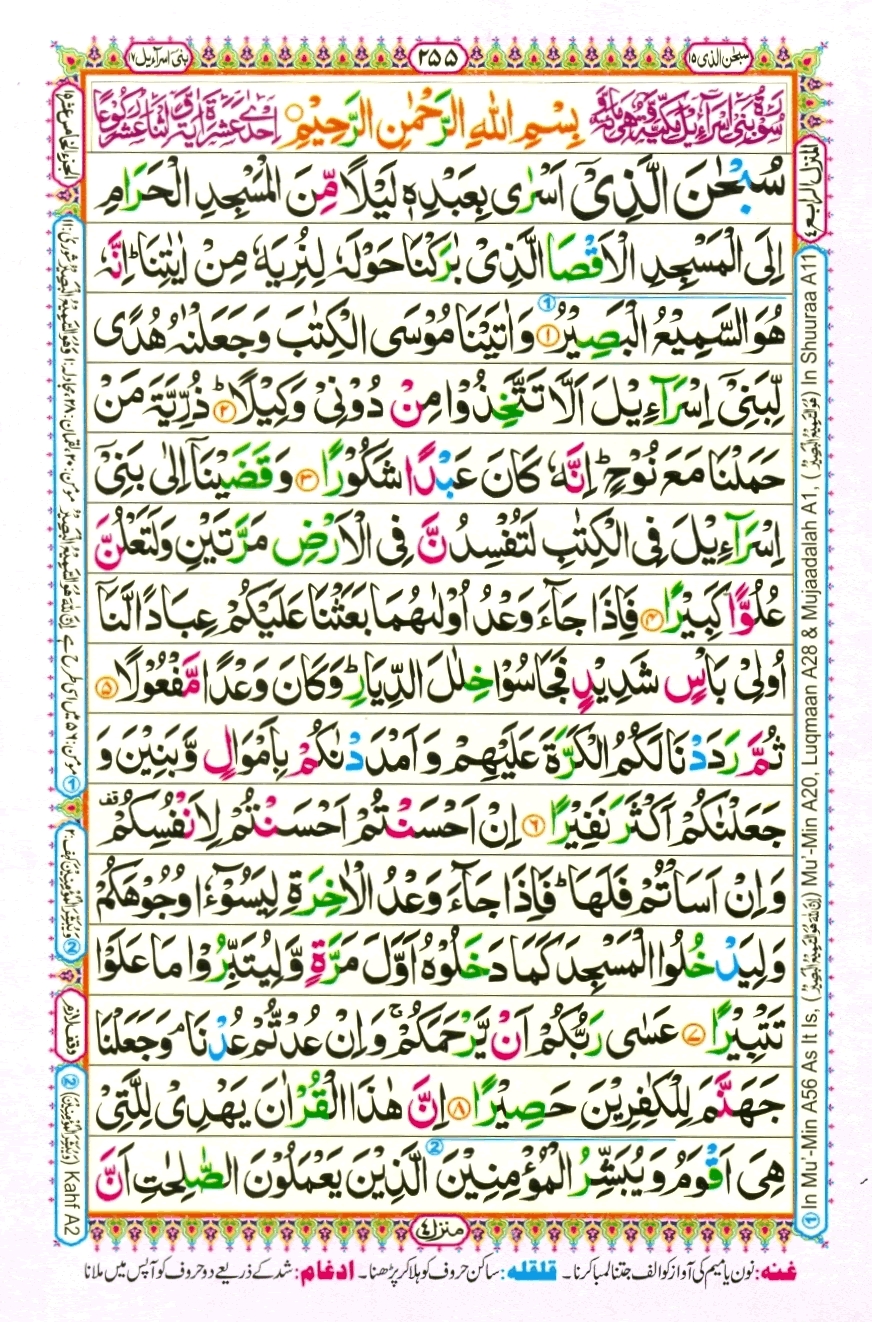 سبحٰن الذی ۱۵
۲۵۵
بنی اسرآءیل ۱۷
سُوْرَةُ بَنِيْٓ اِسْرَآءِيْلَ مَكِّيَّةٌ وَّهِيَ
بِسْمِ اللهِ الرَّحْمٰنِ الرَّحِيْمِ
اِحْدٰى عَشَرَةَ اٰيَةً وَّاثْنَا عَشَرَ رُكُوْعًا
سُبْحٰنَ الَّذِيْٓ اَسْرٰى بِعَبْدِهٖ لَيْلًا مِّنَ الْمَسْجِدِ الْحَرَامِ
اِلَى الْمَسْجِدِ الْاَقْصَا الَّذِيْ بٰرَكْنَا حَوْلَهٗ لِنُرِيَهٗ مِنْ اٰيٰتِنَا ؕ اِنَّهٗ
هُوَ السَّمِيْعُ الْبَصِيْرُ ۱ وَاٰتَيْنَا مُوْسَى الْكِتٰبَ وَجَعَلْنٰهُ هُدًى
لِّبَنِيْٓ اِسْرَآءِيْلَ اَلَّا تَتَّخِذُوْا مِنْ دُوْنِيْ وَكِيْلًا ؕ ۲ ذُرِّيَّةَ مَنْ
حَمَلْنَا مَعَ نُوْحٍ ؕ اِنَّهٗ كَانَ عَبْدًا شَكُوْرًا ۳ وَقَضَيْنَآ اِلٰى بَنِيْٓ
اِسْرَآءِيْلَ فِي الْكِتٰبِ لَتُفْسِدُنَّ فِي الْاَرْضِ مَرَّتَيْنِ وَلَتَعْلُنَّ
عُلُوًّا كَبِيْرًا ۴ فَاِذَا جَآءَ وَعْدُ اُوْلٰىهُمَا بَعَثْنَا عَلَيْكُمْ عِبَادًا لَّنَآ
اُولِيْ بَاْسٍ شَدِيْدٍ فَجَاسُوْا خِلٰلَ الدِّيَارِ ؕ وَكَانَ وَعْدًا مَّفْعُوْلًا ۵
ثُمَّ رَدَدْنَا لَكُمُ الْكَرَّةَ عَلَيْهِمْ وَاَمْدَدْنٰكُمْ بِاَمْوَالٍ وَّبَنِيْنَ وَ
جَعَلْنٰكُمْ اَكْثَرَ نَفِيْرًا ۶ اِنْ اَحْسَنْتُمْ اَحْسَنْتُمْ لِاَنْفُسِكُمْ قف
وَاِنْ اَسَاْتُمْ فَلَهَا ؕ فَاِذَا جَآءَ وَعْدُ الْاٰخِرَةِ لِيَسُوْٓءٗا وُجُوْهَكُمْ
وَلِيَدْخُلُوا الْمَسْجِدَ كَمَا دَخَلُوْهُ اَوَّلَ مَرَّةٍ وَّلِيُتَبِّرُوْا مَا عَلَوْا
تَتْبِيْرًا ۷ عَسٰى رَبُّكُمْ اَنْ يَّرْحَمَكُمْ ۚ وَاِنْ عُدْتُّمْ عُدْنَا ۘ وَجَعَلْنَا
جَهَنَّمَ لِلْكٰفِرِيْنَ حَصِيْرًا ۸ اِنَّ هٰذَا الْقُرْاٰنَ يَهْدِيْ لِلَّتِيْ
هِيَ اَقْوَمُ وَيُبَشِّرُ الْمُؤْمِنِيْنَ الَّذِيْنَ يَعْمَلُوْنَ الصّٰلِحٰتِ اَنَّ
المنزل الرابع ۴
① In Mu'-Min A56 As It Is, (اِنَّ اللهَ هُوَ السَّمِيْعُ الْبَصِيْرُ) Mu'-Min A20, Luqmaan A28 & Mujaadalah A1, (هُوَ السَّمِيْعُ الْبَصِيْرُ) In Shuuraa A11
الجزء الخامس عشر ۱۵
وقف لازم
② (وَيُبَشِّرَ الْمُؤْمِنِيْنَ) Kahf A2
منزل ۴
غنه: نون یا میم کی آواز کو الف جتنا لمبا کرنا۔ قلقله: ساکن حروف کو ہلا کر پڑھنا۔ ادغام: شد کے ذریعے دو حروف کو آپس میں ملانا